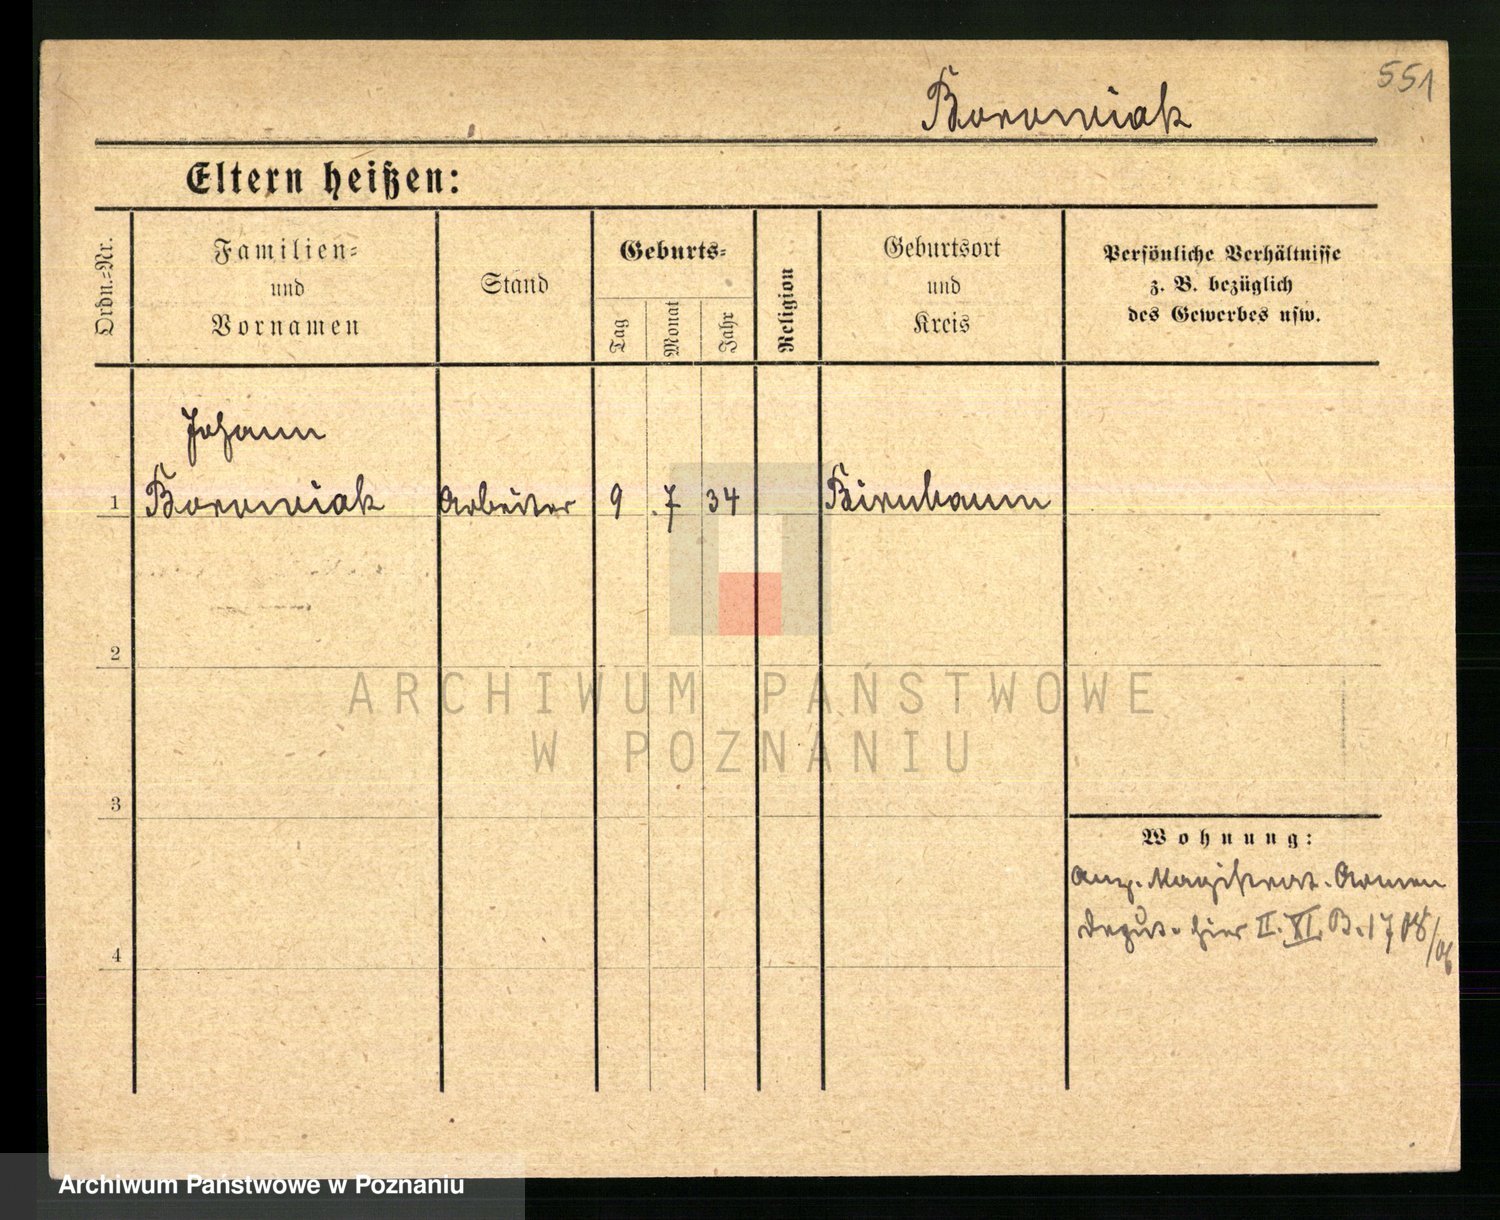 551
Boroniak
Eltern heißen:
Ordn.=Nr.
Familien=
und
Vornamen
Stand
Geburts=
Tag
Monat
Jahr
Religion
Geburtsort
und
Kreis
Persönliche Verhältnisse
z. B. bezüglich
des Gewerbes usw.
Johann
1 Boroniak Arbeiter 9 . 7 34 Birnbaum
2
ARCHIWUM PAŃSTWOWE
W POZNANIU
3
Wohnung:
Anz. Magistrat. Armen
Deput. hier II. XI. B. 1708/06
4
Archiwum Państwowe w Poznaniu